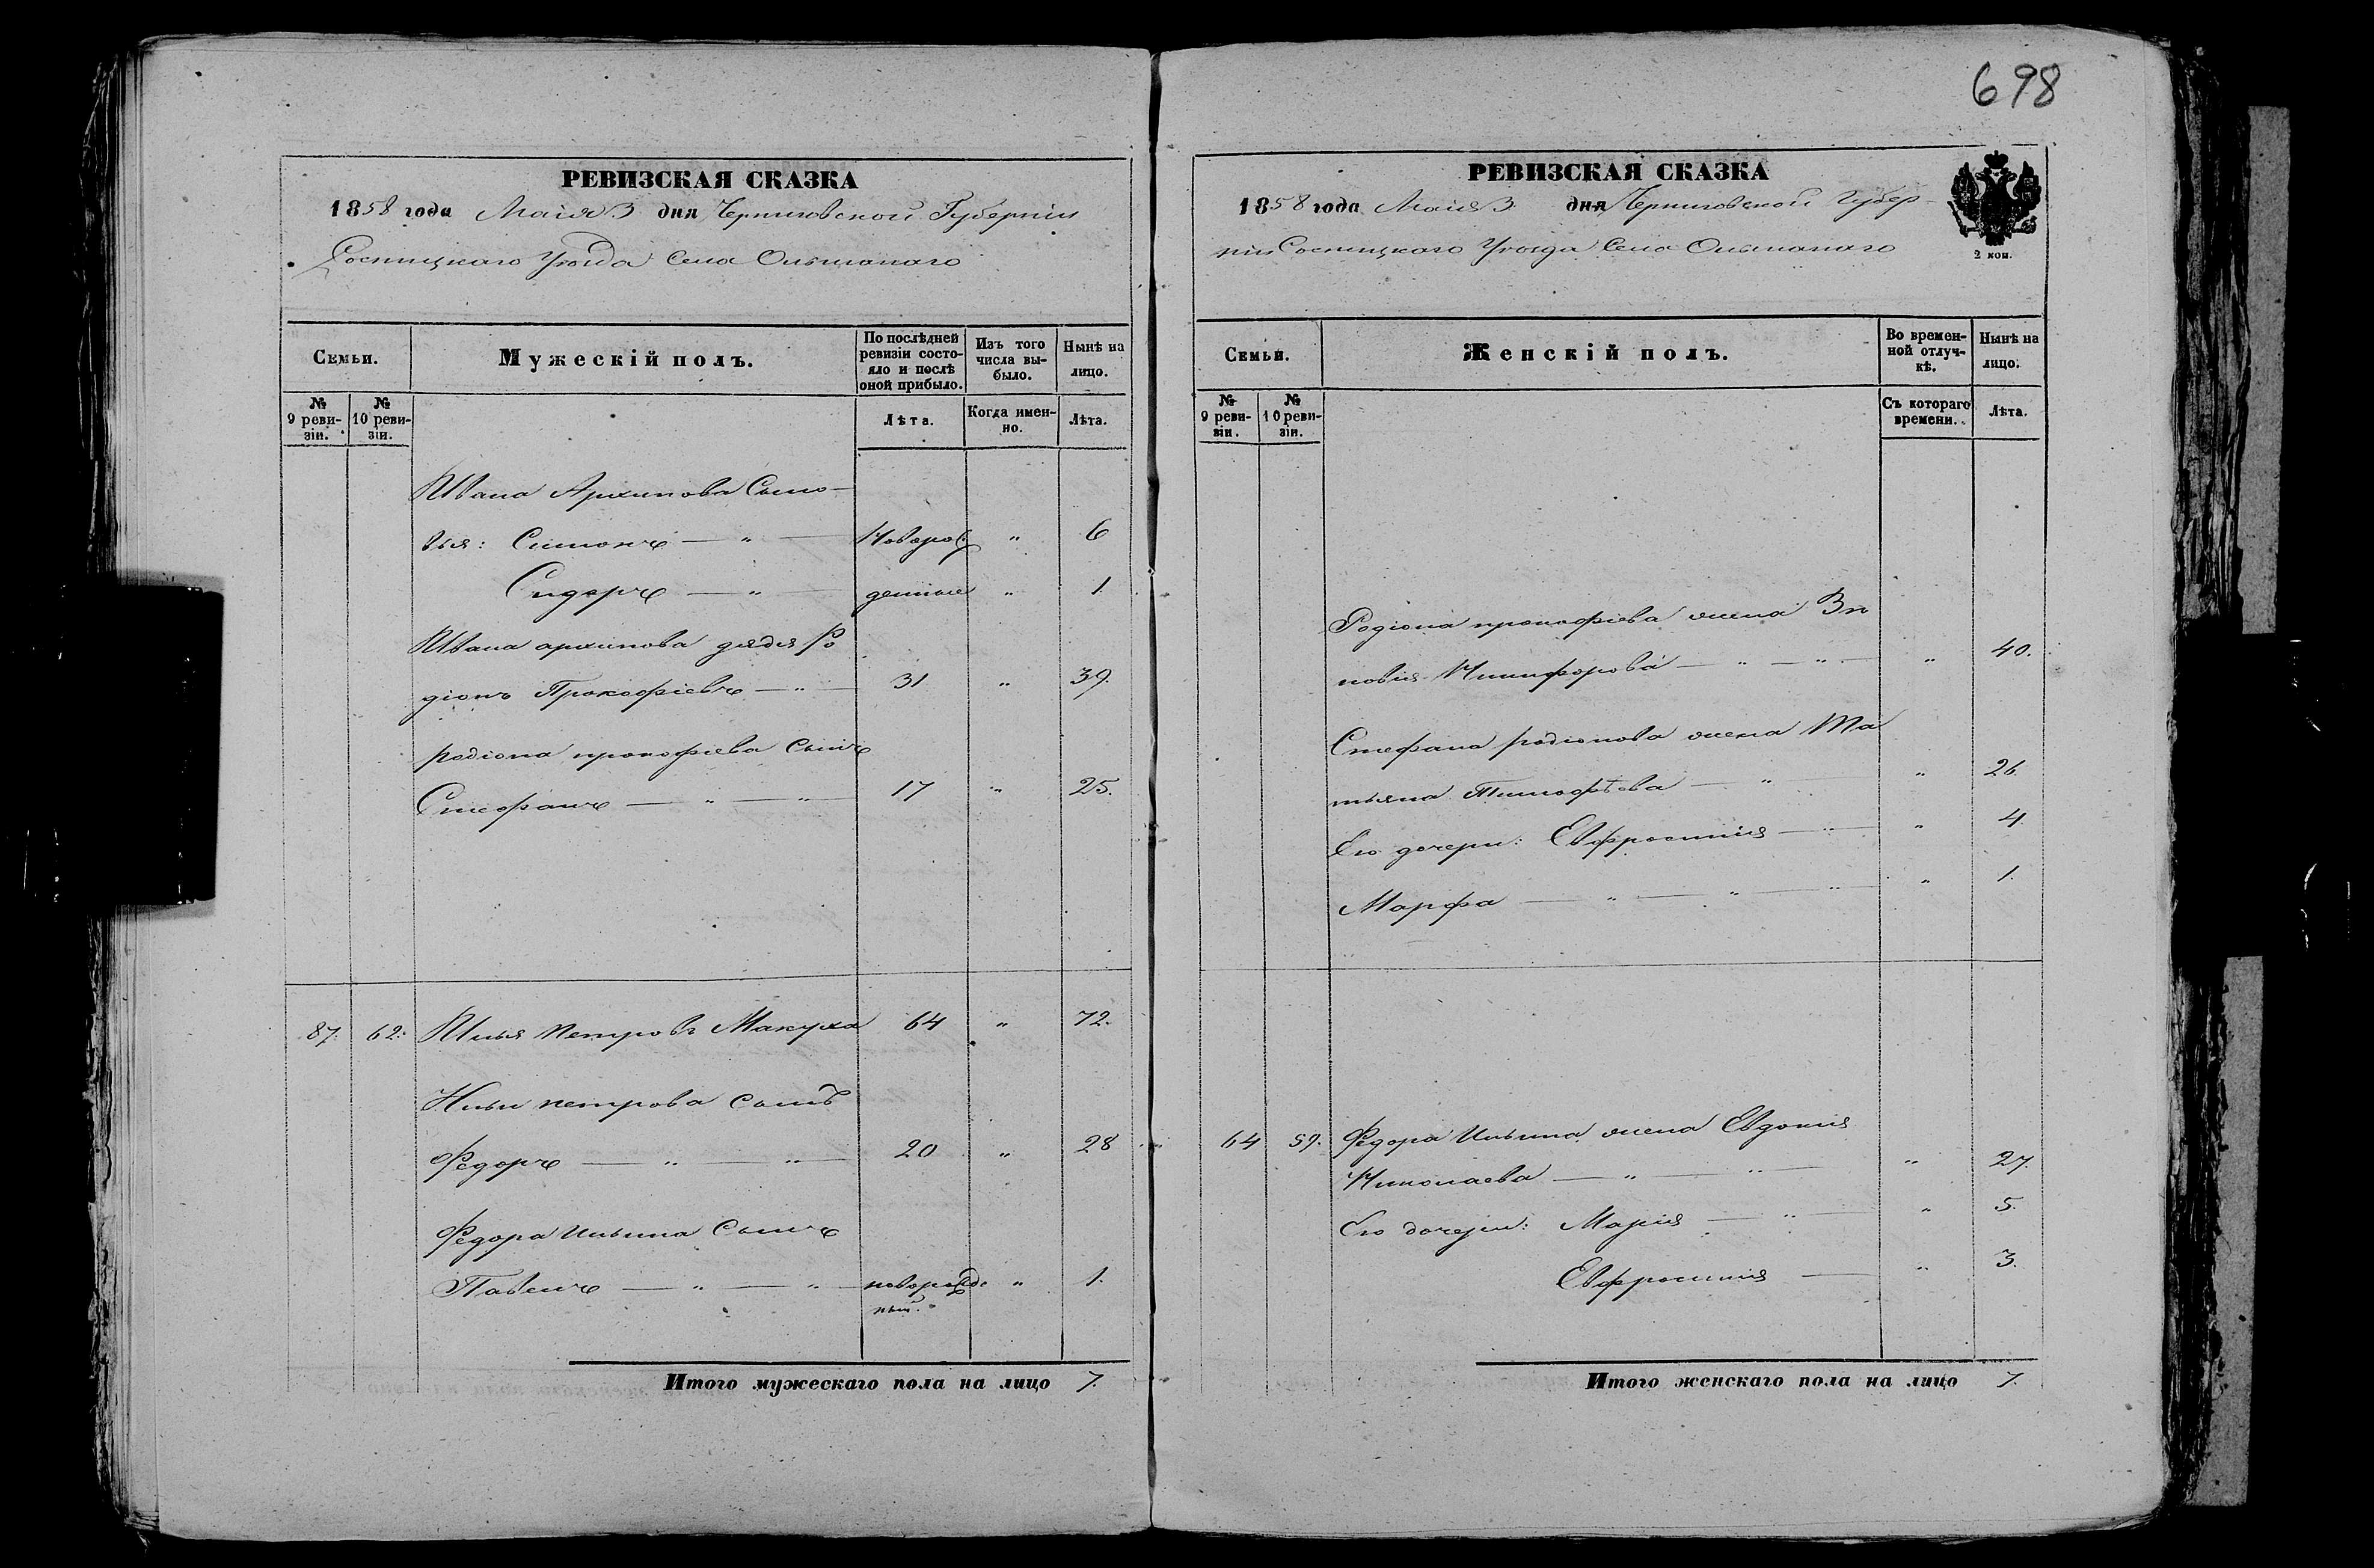 698
РЕВИЗСКАЯ СКАЗКА
1858 года Маія 3 дня Черниговской Губерніи
Сосницкаго Уѣзда Села Ольшанаго
Семьи.
Мужескій полъ.
По послѣдней ревизіи состояло и послѣ оной прибыло.
Изъ того числа выбыло.
Нынѣ на лицо.
№ 9 ревизіи.
№ 10 ревизіи.
Лѣта.
Когда именно.
Лѣта.
Ивана Архипова Сыно-
вья: Симонъ — " — Новорож „ 6
Сидоръ — " — денные „ 1.
Ивана архипова дядя Ро
діонъ Прокофіевъ — " — 31 „ 39.
родіона прокофіева Сынъ
Стефанъ — " — " — 17 „ 25.
87. 62. Илья Петровъ Макуха 64 „ 72.
Ильи петрова сынъ
Федоръ — " — " — 20 „ 28
Федора Ильина Сынъ
Павелъ — " — " — новорожде „ 1.
ный.
Итого мужескаго пола на лицо 7.
РЕВИЗСКАЯ СКАЗКА
1858 года Маія 3 дня Черниговской Губер-
ніи Сосницкаго Уѣзда Села Ольшанаго
2 коп.
Семьи.
Женскій полъ.
Во временной отлучкѣ.
Нынѣ на лицо.
№ 9 ревизіи.
№ 10 ревизіи.
Съ котораго времени.
Лѣта.
Родіона прокофіева жена Зи
новія Никифорова — " — " — „ 40.
Стефана родіонова жена Та
тьяна Тимофѣева — " — „ 26.
Его дочери: Евфросинія — " — „ 4.
Марфа — " — " — " — „ 1.
64 59. Федора Ильина жена Евдокія
Николаева — " — " — „ 27.
Его дочери: Марія — " — „ 5.
Евфросинія — „ 3.
Итого женскаго пола на лицо 7.